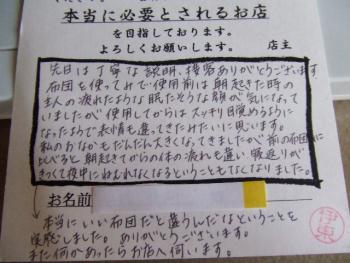 本当に必要とされるお店
を目指しております。
よろしくお願いします。 店主
先日は丁寧な説明、接客ありがとうございます
布団を使ってみて使用前は朝起きた時の
主人の疲れたような眠たそうな顔が気になって
いましたが使用してからはスッキリ目覚めるように
なったようで表情も違ってきたみたいに思います。
私のおなかもだんだん大きくなってきましたが前の布団に
比べると朝起きてからの体の疲れも違い寝返りが
きつくて夜中にねむれなくなるということもなくなりました。
お名前
本当にいい布団だと違うんだなということを
実感しました。ありがとうございます。
また何かあったらお店へ伺います。
伊東